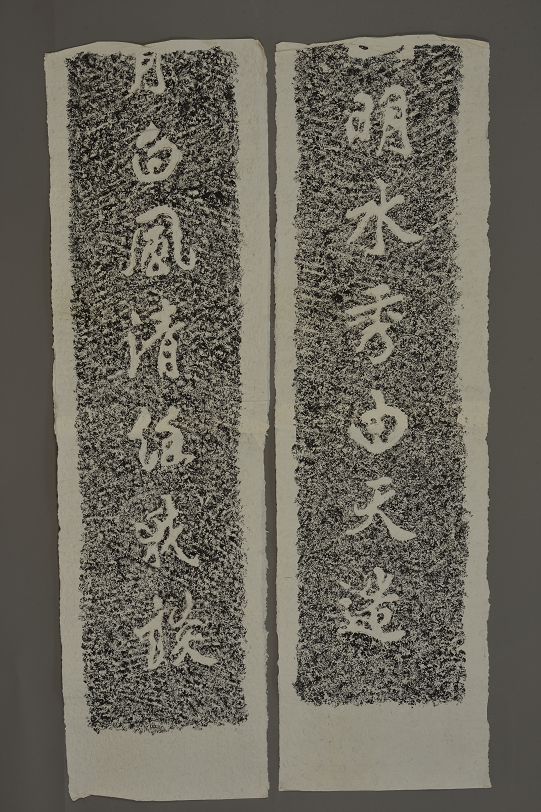 明水秀由天造
月白風清任我